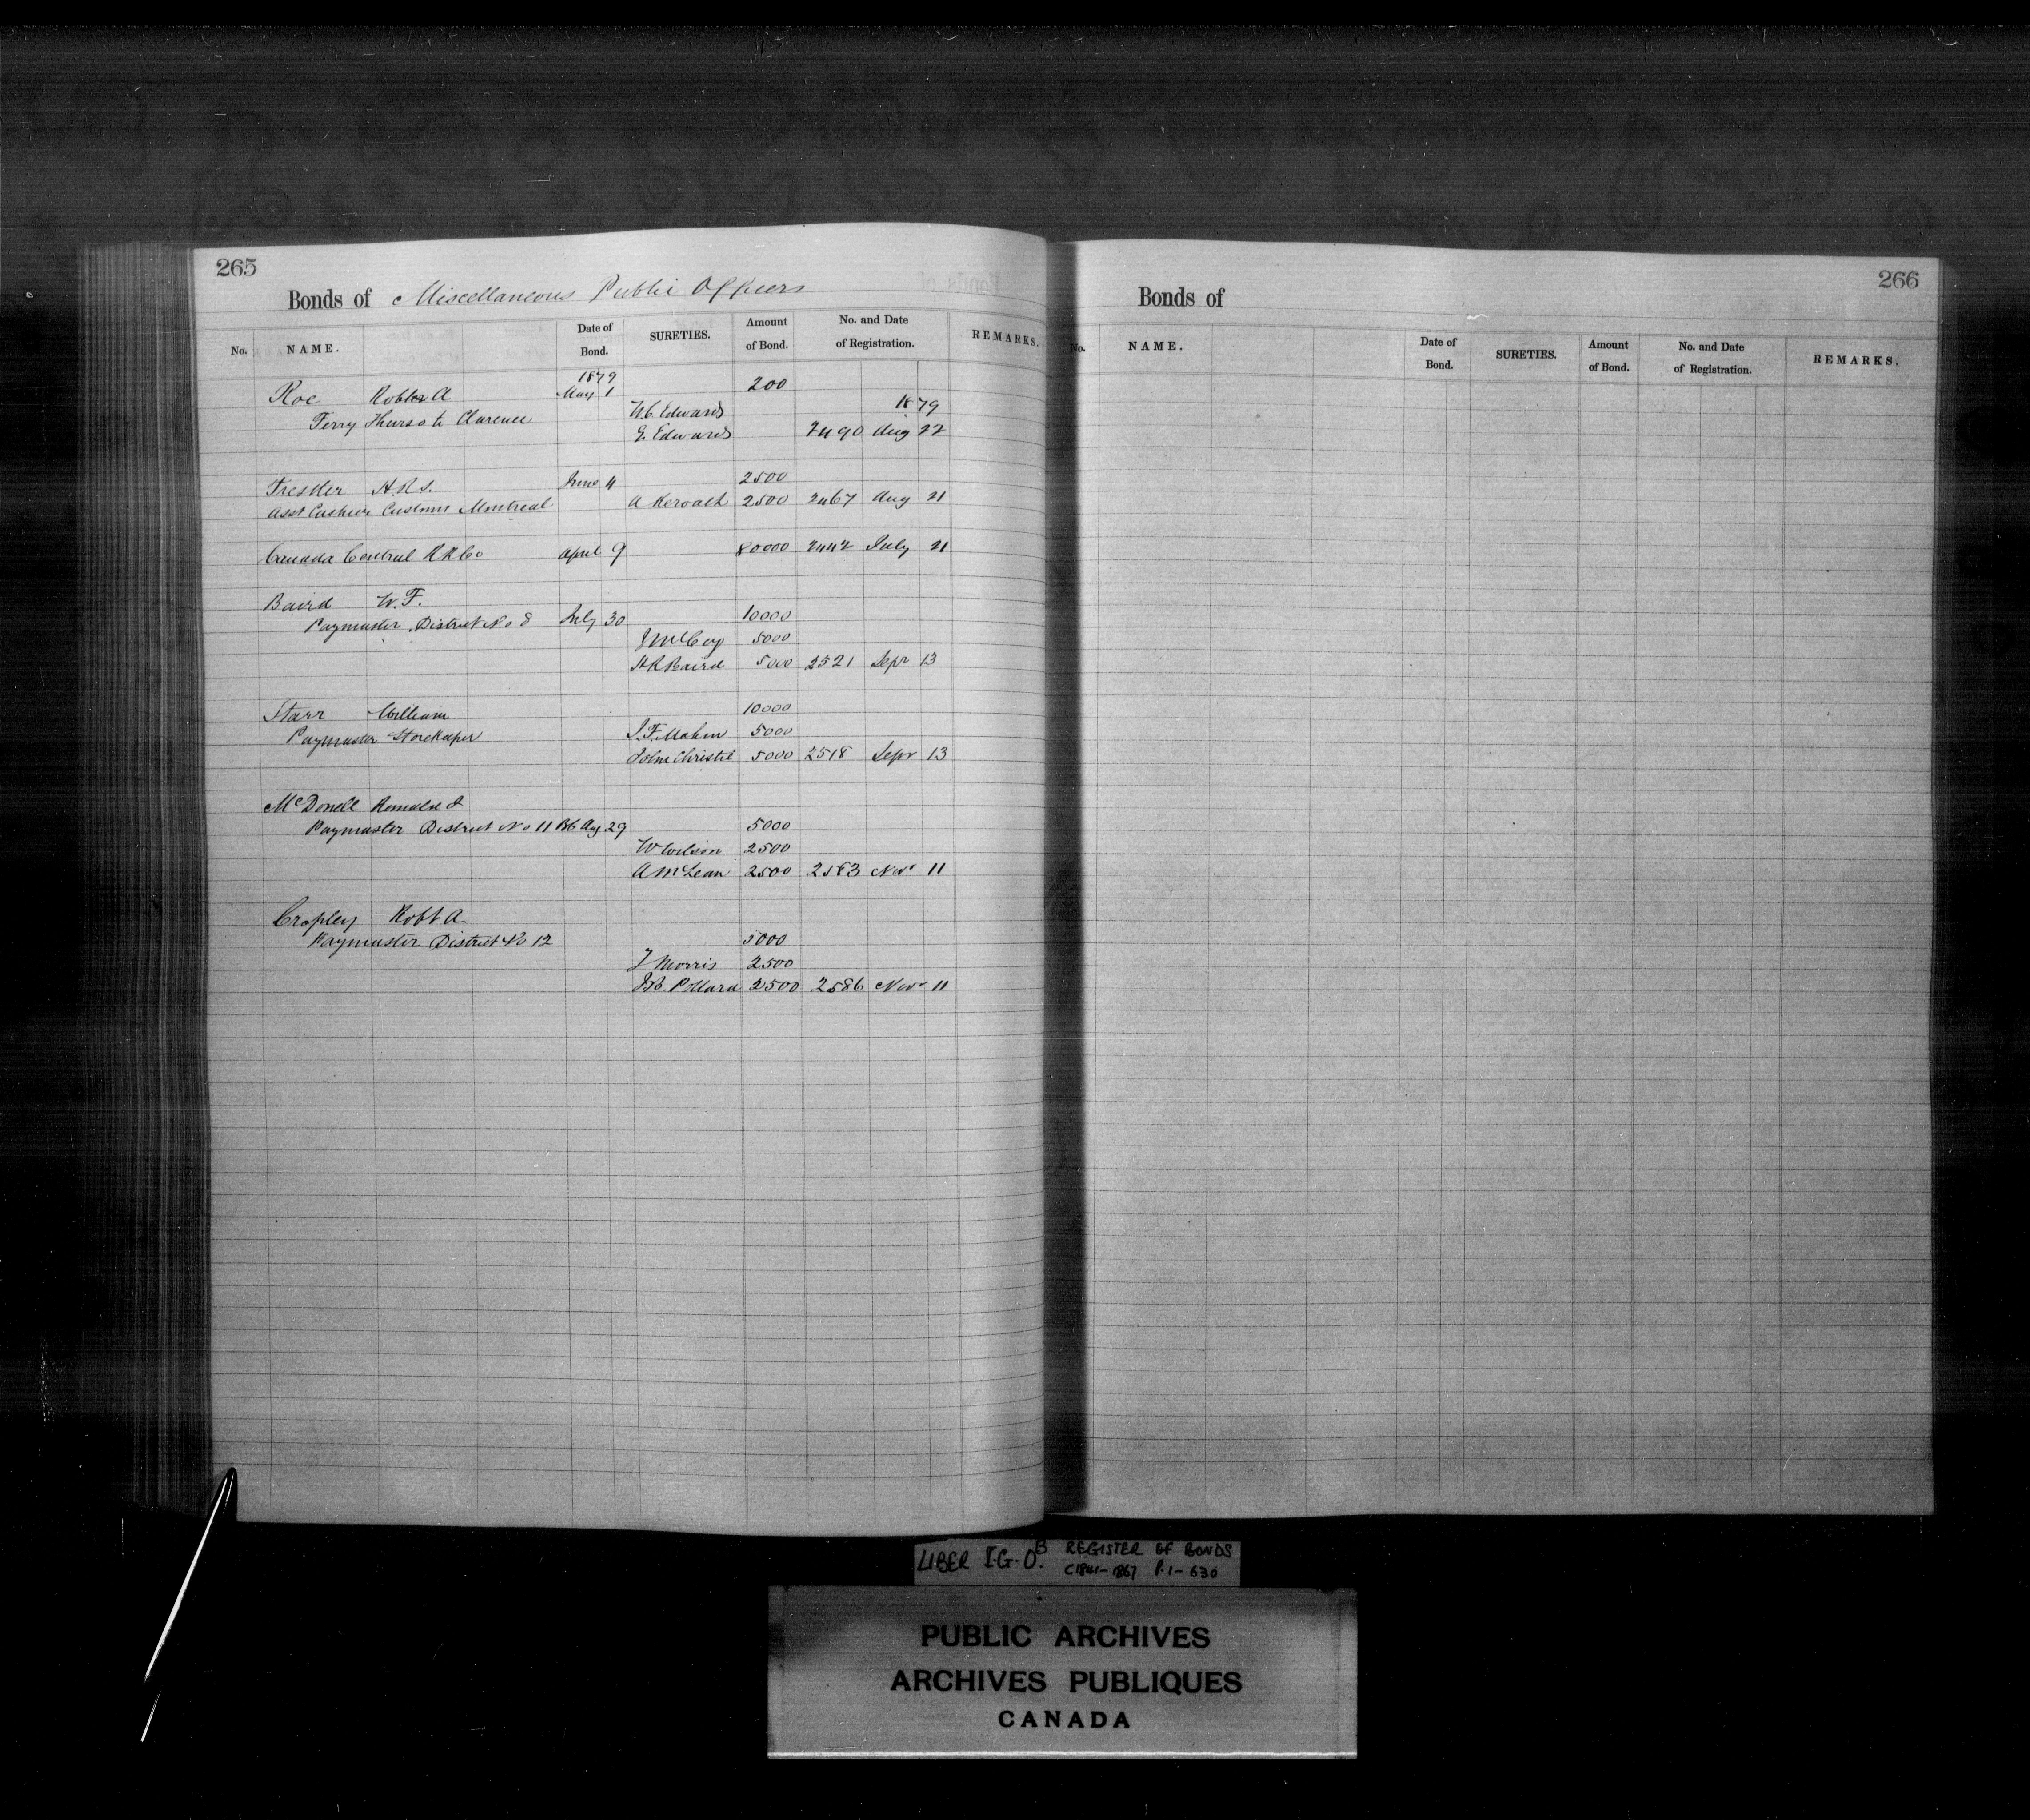 265
Bonds of Miscellaneous Public Officers
No. NAME. Date of Bond. SURETIES. Amount of Bond. No. and Date of Registration. REMARKS.
1879
Roe Robt A May 1 200
Ferry Thurso to Clarence W.C. Edwards 1879
E. Edwards 2490 Aug 22
H.R.S. June 4 2500
Asst Cashier Customs Montreal A 2500 2467 Aug 21
Canada Central RR Co April 9 80000 2442 July 21
Baird W. F.
Paymaster District No 8 July 30 10000
J McCoy 5000
H R Baird 5000 2521 Sepr 13
Starr William 10000
Paymaster Storekeeper 5000
John Christie 5000 2518 Sepr 13
McDonell Romuald J
Paymaster District No 11 BC Aug 29 5000
W Wilson 2500
A McLean 2500 2583 Novr 11
Cropley Robt A
Paymaster District No 12 5000
T Morris 2500
2500 2586 Novr 11
266
Bonds of
No. NAME. Date of Bond. SURETIES. Amount of Bond. No. and Date of Registration. REMARKS.
LIBER I.G.O.B REGISTER OF BONDS
C1841-1867 P.1-630
PUBLIC ARCHIVES
ARCHIVES PUBLIQUES
CANADA